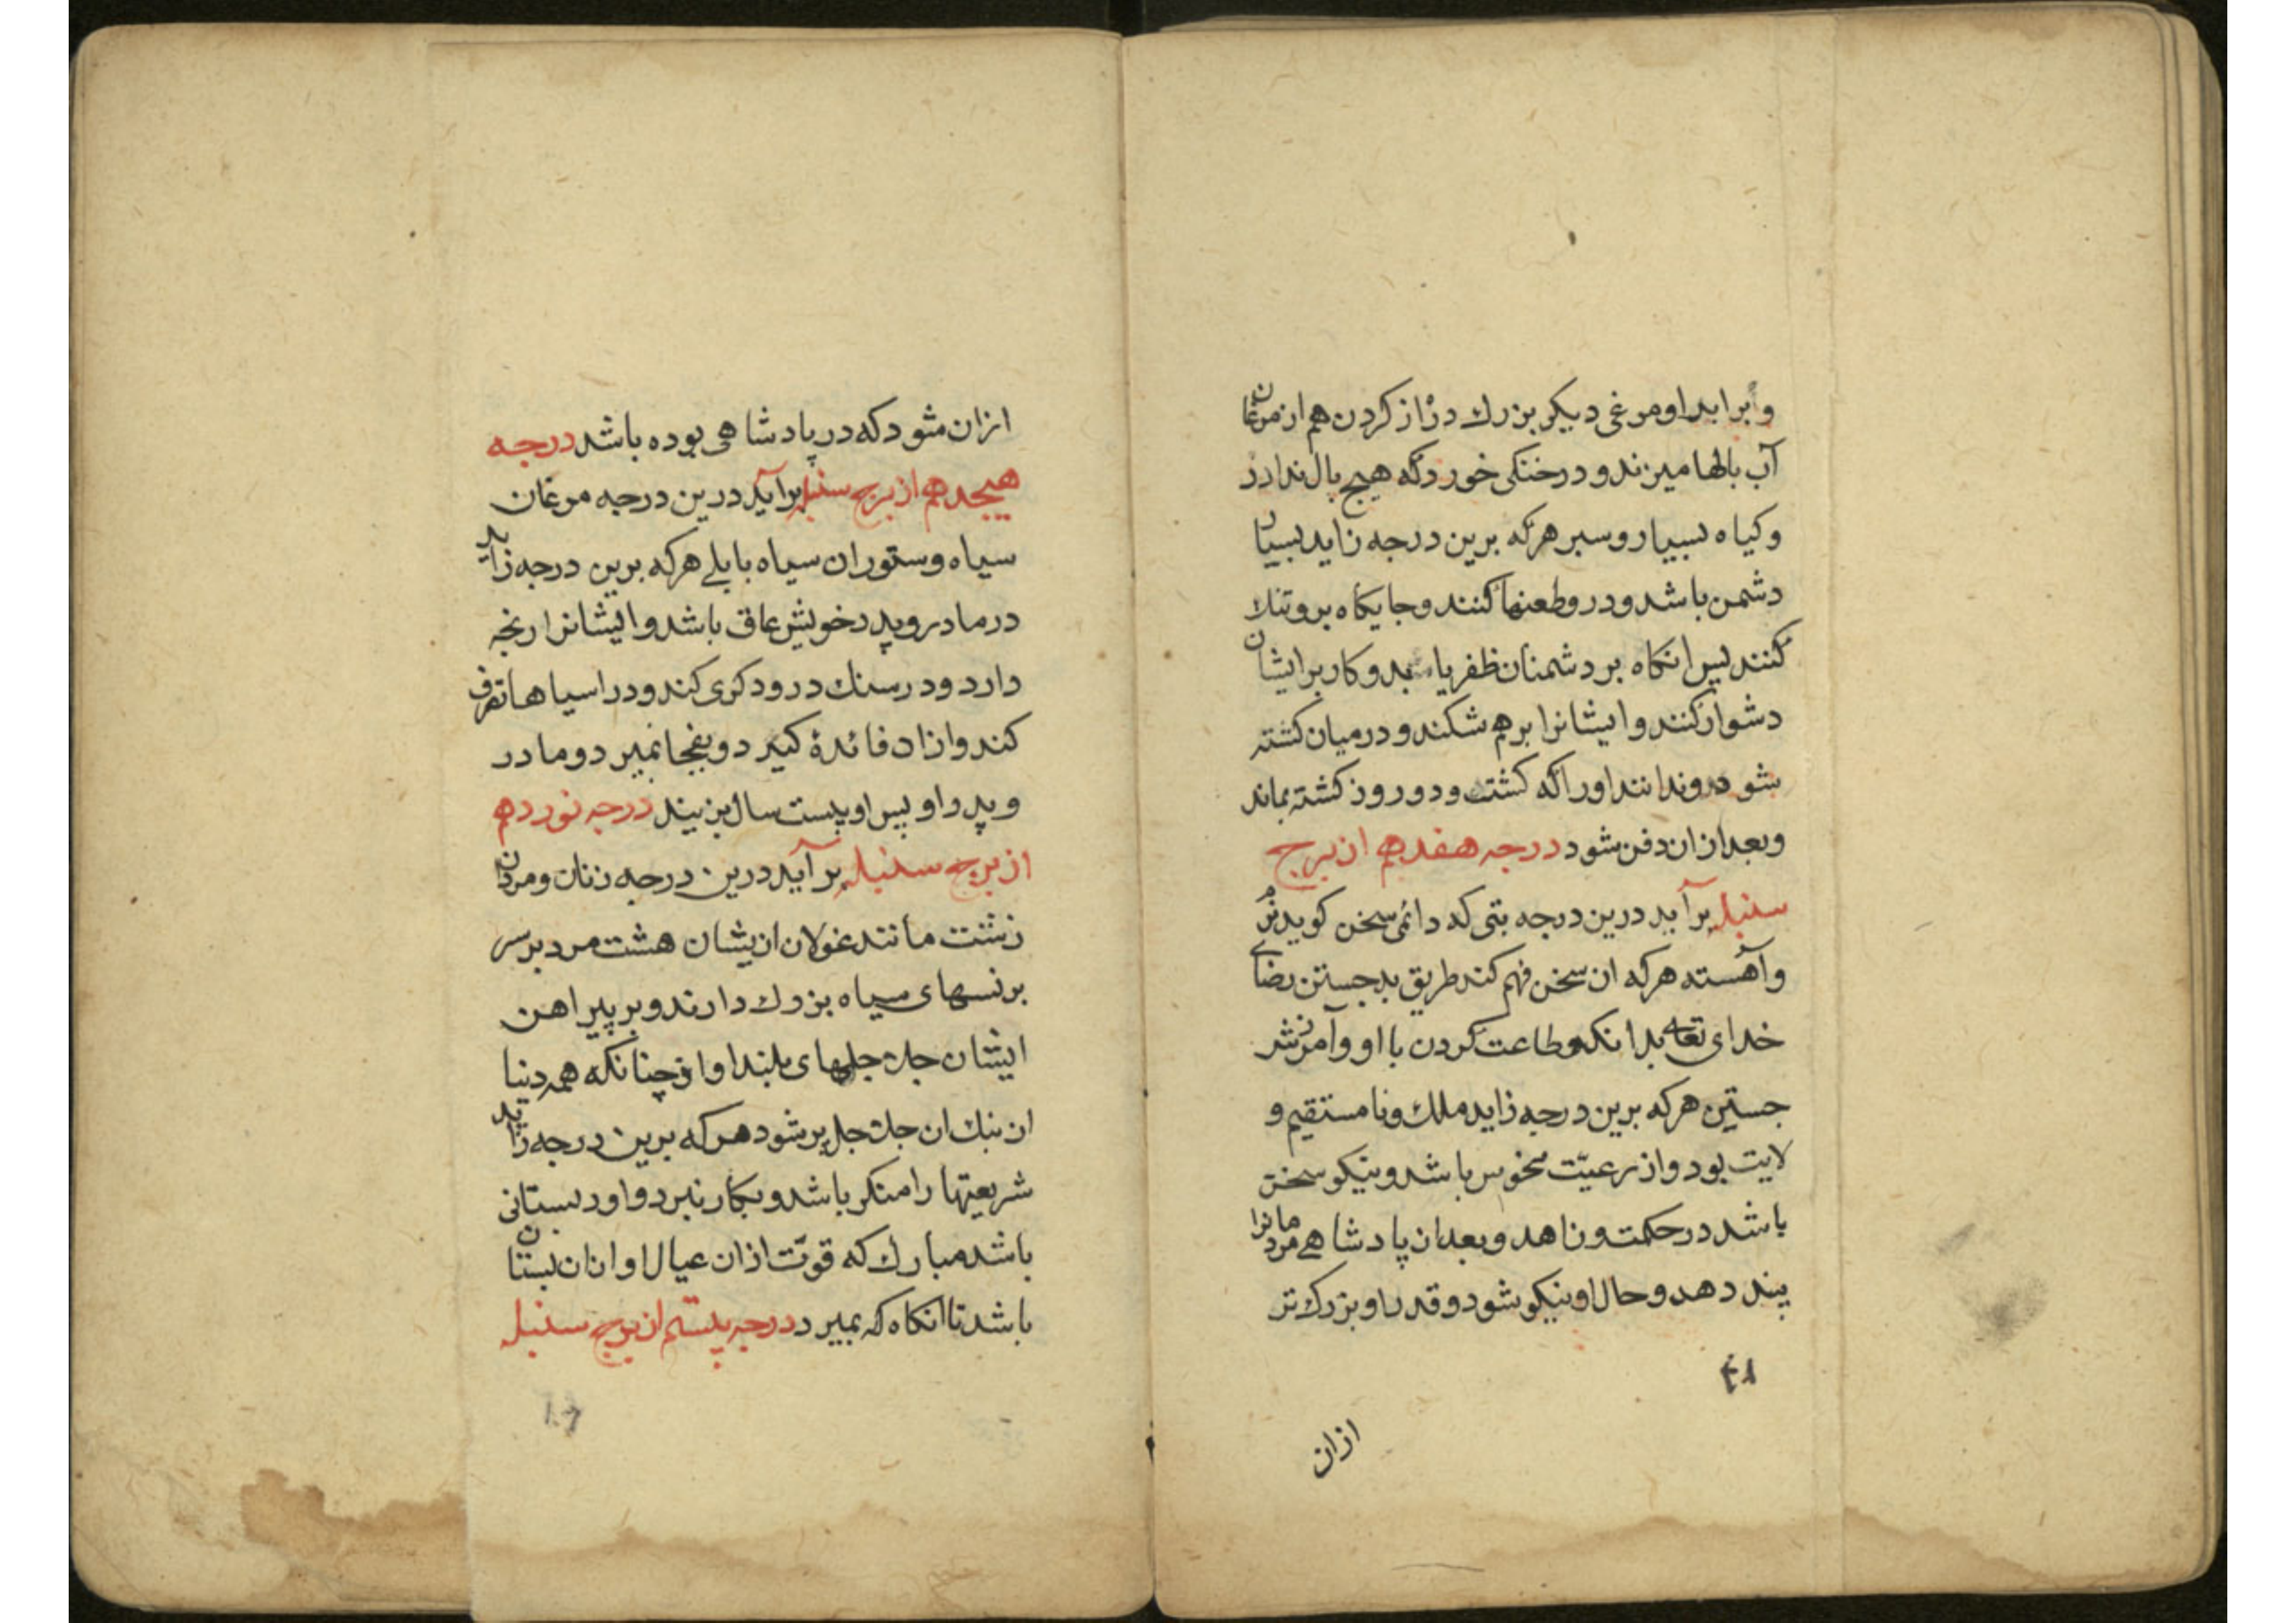 وبرابر او مرغی دیکر بزرك دراز کردن هم از مرغان
آب بالها میزند و در خنکی خورد که هیچ بال ندارد
وکیاه بسیار و سبر هرکه برین درجه زاید بسیار
دشمن باشد و درو طعنها کنند و جایکاه برو تنك
کنند پس انکاه بر دشمنان ظفر یابد و کار بر ایشان
دشوار کنند و ایشانرا برهم شکند و در میان کشته
شود و ندانند اورا که کشت و دو روز کشته بماند
وبعد از ان دفن شود درجه هفدهم از برج
سنبله برآید درین درجه بتی که دائمی سخن کوید نرم
وآهسته هرکه ان سخن فهم کند طریق بد جستن رضاے
خدای تعا بدانکه و طاعت کردن با او وآمرزش
جستن هرکه برین درجه زاید ملك و نا مستقیم و
لایت بود و از رعیّت منحوس باشد و نیکو سخن
باشد در حکمت و زاهد و بعد ان پادشاهے مردمانرا
پند دهد و حال او نیکو شود و قدر او بزرك تر
۴۸
ازان
ازان شود که در پادشاهی بوده باشد درجه
هیجدهم از برج سنبله برآید درین درجه مرغان
سیاه و ستوران سیاه بابلے هرکه برین درجه زاید
در مادر و پدر خویش عاق باشد و ایشانرا رنجه
دارد و در سنك درودکری کند و در اسیاها تصرف
کند و ازان فائدهٔ کیرد و بفجا نمیرد و مادر
و پدر او پس او بیست سال بزیند درجه نوزدهم
از برج سنبله برآید درین درجه زنان و مردان
زشت مانند غولان ازیشان هشت مرد بر سر
برنسهای سیاه بزرك دارند و بر پیراهن
ایشان جلاجلهای بلند اواز چنانکه همه دنیا
از بنك ان جلاجل پر شود هرکه برین درجه زاید
شریعتها را منکر باشد و بکار نبرد و اورد بستانی
باشد مبارك که قوّت ازان عیال او ازان بستان
باشد تا انکاه که بمیرد درجه بیستم از برج سنبله